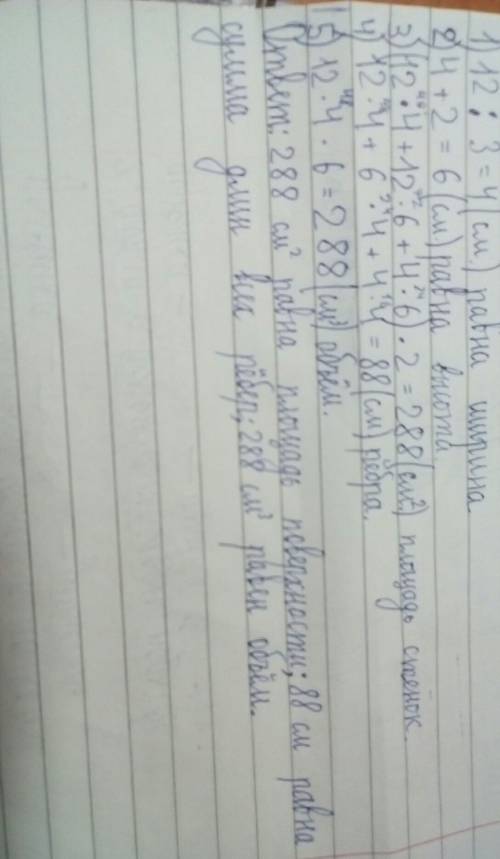 1) 12 : 3 = 4 (см) равна ширина.
2) 4 + 2 = 6 (см) равна высота
3) (12 · 4 + 12 · 6 + 4 · 6) · 2 = 288 (см²) площадь стенок.
4) 12 · 4 + 6 · 4 + 4 · 4 = 88 (см) рёбра.
5) 12 · 4 · 6 = 288 (см³) объём.
Ответ: 288 см² равна площадь поверхности; 88 см равна
сумма длин всех рёбер; 288 см³ равен объём.